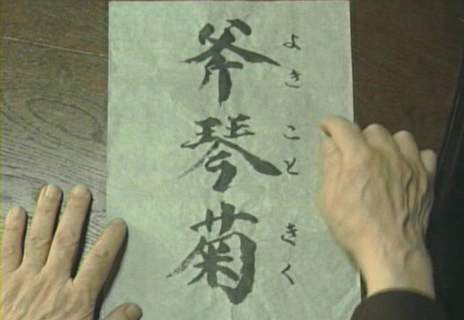 斧琴菊
よきことききく